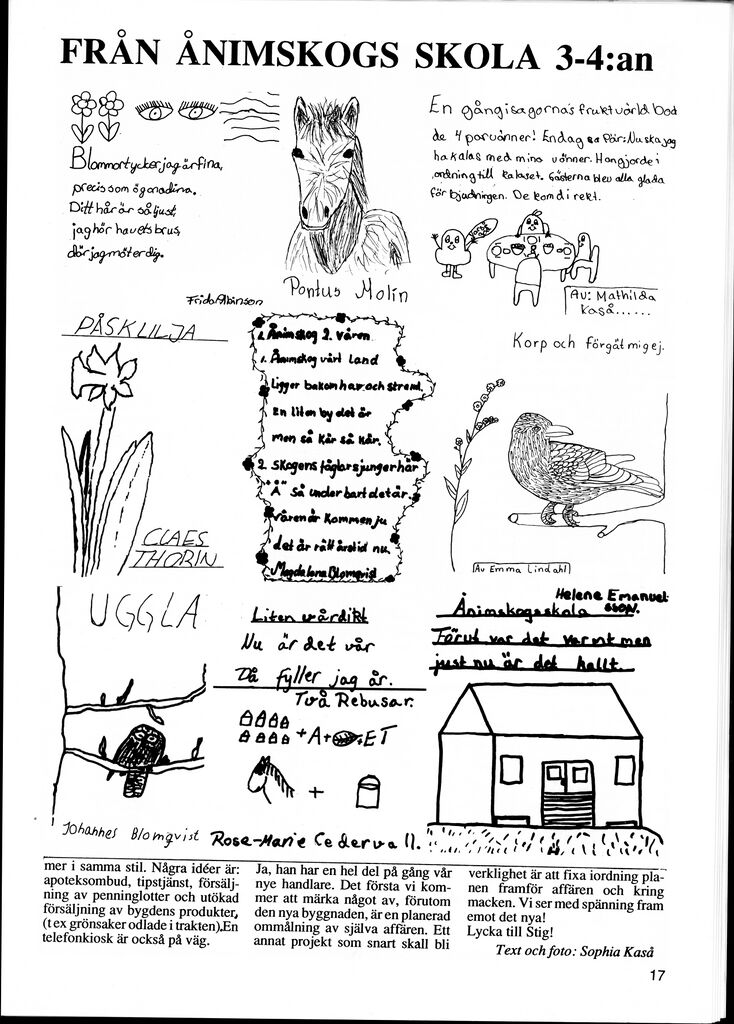 FRÅN ÅNIMSKOGS SKOLA 3-4:an
Blommor tycker jag är fina,
precis som ögonadina.
Ditt hår är så ljust,
jag hör havets brus,
där jag möter dig.
Frida Albinson
Pontus Molin
En gång i sagornas fruktvärld bod
de 4 par vänner! En dag sa Pär: Nu ska jag
ha kalas med mina vänner. Han gjorde i
ordning till kalaset. Gästerna blev alla glada
för bjudningen. De kom direkt.
Av: Mathilda
Kaså......
PÅSKLILJA
CLAES
THORIN
1. Ånimskog 2. Våren
1. Ånimskog vårt land
Ligger bakom hav och strand.
En liten by det är
men så kär så kär.
2. Skogens fåglar sjunger här
"Å" så underbart det är.
Våren är kommen ju
det är rätt årstid nu.
Magdalena Blomqvist
Korp och förgätmigej.
Av Emma Lindahl
UGGLA
Johannes Blomqvist
Liten vårdikt
Nu är det vår
Då fyller jag år.
Två Rebusar.
+A+ +ET
+
Rose-Marie Cedervall.
Helene Emanuel
sson.
Ånimskogsskola
Förut var det varmt men
just nu är det kallt.
mer i samma stil. Några idéer är:
apoteksombud, tipstjänst, försälj-
ning av penninglotter och utökad
försäljning av bygdens produkter,
(t ex grönsaker odlade i trakten).En
telefonkiosk är också på väg.
Ja, han har en hel del på gång vår
nye handlare. Det första vi kom-
mer att märka något av, förutom
den nya byggnaden, är en planerad
ommålning av själva affären. Ett
annat projekt som snart skall bli
verklighet är att fixa iordning pla-
nen framför affären och kring
macken. Vi ser med spänning fram
emot det nya!
Lycka till Stig!
Text och foto: Sophia Kaså
17